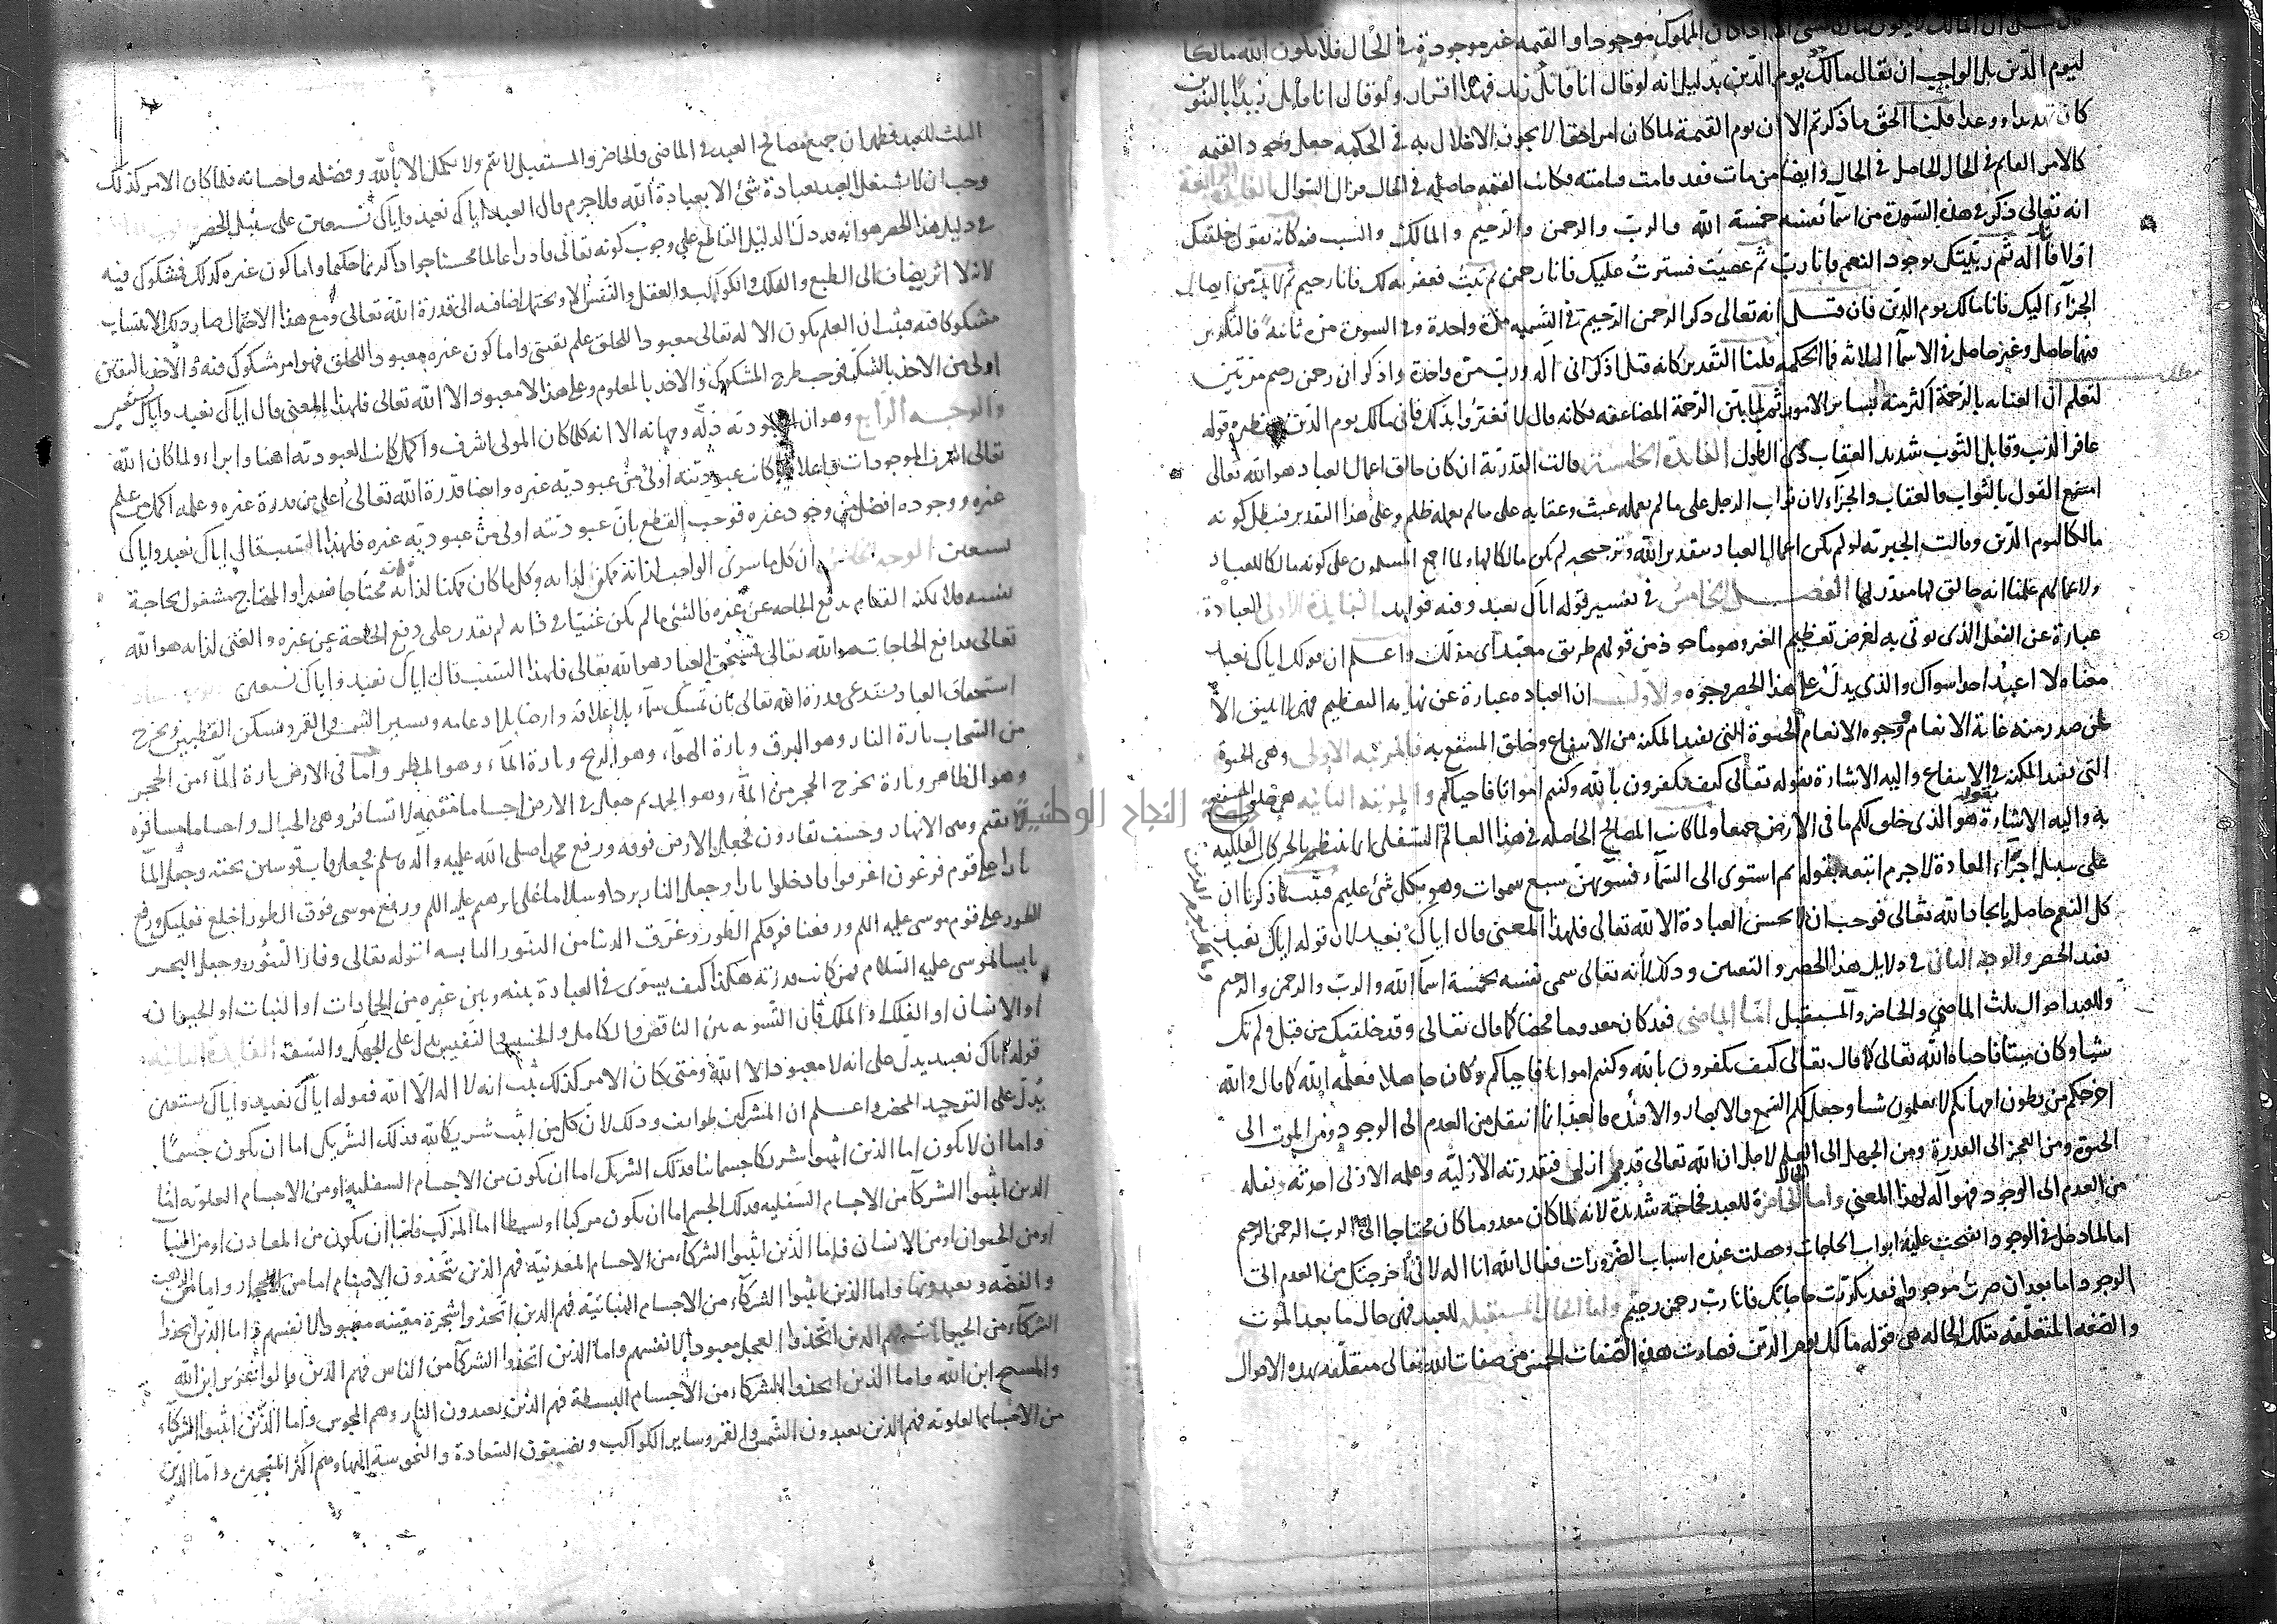 ان المالك لا يكون مالكا للشئ الا اذا كان المملوك موجودا والقيمه غير موجودة فى الحال فلا يكون الله مالكا
ليوم الدين بل الواجب ان يقال مالك يوم الدين بدليل انه لو قال انا قاتل زيد فهذا اقرار ولو قال انا قاتل زيدا بالتنوين
كان تهديدا ووعدا قلنا الحق ما ذكرتم الا ان يوم القيمة لما كان امرا حقا لا يجوز الاخلال به فى الحكمه جعل وجود القيمه
كالامر القايم فى الحال الحاصل فى الحال وايضا من مات فقد قامت قيامته فكانت القيمه حاصله فى الحال فزال السوال الفايده الرابعة
انه تعالى ذكر فى هذه السورة من اسما نفسه خمسة الله والرب والرحمن والرحيم والمالك والسبب فيه كانه يقول خلقتك
اولا فانا اله ثم ربيتك بوجود النعم فانا رب ثم عصيت فسترت عليك فانا رحمن ثم تبت فغفرت لك فانا رحيم ثم لا بد من ايصال
الجزاء اليك فانا مالك يوم الدين فان قيل انه تعالى ذكر الرحمن الرحيم فى التسميه مرة واحدة وفى السورة مرة ثانية فالتكرير
فيهما حاصل وغير حاصل فى الاسما الثلاثه فما الحكمه قلنا التقدير كانه قيل اذكر انى اله ورب مرة واحدة واذكر انى رحمن رحيم مرتين
لتعلم ان العنايه بالرحمة اكثر منه بساير الامور ثم لما بين الرحمة المضاعفه فكانه قال لا تغتروا بذلك فانى مالك يوم الدين ونظيره قوله
غافر الذنب وقابل التوب شديد العقاب ذى الطول الفايدة الخامسة قالت القدرية ان كان خالق اعمال العباد هو الله تعالى
امتنع القول بالثواب والعقاب والجزاء لان ثواب الرجل على ما لم يعمله عبث وعقابه على ما لم يعمله ظلم وعلى هذا التقدير فيبطل كونه
مالكا ليوم الدين وقالت الجبريه لو لم يكن اعمال العباد بتقدير الله وترجيحه لم يكن مالكا لها ولما اجمع المسلمون على كونه مالكا للعباد
ولاعمالهم علمنا انه خالق لها مقدر لها الفصل الخامس فى تفسير قوله اياك نعبد وفيه فوايد الفايدة الاولى العبادة
عبارة عن الفعل الذى يوتى به لغرض تعظيم الغير وهو ماخوذ من قولهم طريق معبد اى مذلل واعلم ان قولك اياك نعبد
معناه لا اعبد احدا سواك والذى يدل على هذا الحصر وجوه والاول ان العباده عبارة عن نهاية التعظيم فهى لا يليق الا
لمن صدر منه غاية الانعام ووجوه الانعام الحيوة التى تفيد المكنه من الانتفاع وخلق المنتفع به فالمرتبه الاولى وهى الحيوة
التى تفيد المكنه فى الانتفاع واليه الاشارة بقوله تعالى كيف تكفرون بالله وكنتم امواتا فاحياكم والمرتبه الثانيه هى خلق المنتفع
به واليه الاشارة بقوله هو الذى خلق لكم ما فى الارض جميعا ولما كانت المصالح الحاصله فى هذا العالم السفلى انما ينتظم بالحركات الفلكيه
على سبيل اجزاء العادة لا جرم اتبعه بقوله ثم استوى الى السماء فسويهن سبع سموات وهو بكل شئ عليم فثبت بما ذكرنا ان
كل النعم حاصل بايجاد الله تعالى فوجب ان لا يحسن العبادة الا لله تعالى فلهذا المعنى قال اياك نعبد لان قوله اياك نعبد
يفيد الحصر والوجه الثانى فى دلايل هذا الحصر والتعيين وذلك لانه تعالى سمى نفسه بخمسة اسما الله والرب والرحمن والرحيم
وللعبد احوال ثلث الماضى والحاضر والمستقبل اما الماضى فقد كان معدوما محضا كما قال تعالى وقد خلقتك من قبل ولم تك
شيا وكان ميتا فاحياه الله تعالى كما قال تعالى كيف تكفرون بالله وكنتم امواتا فاحياكم وكان جاهلا فعلمه الله كما قال والله
اخرجكم من بطون امهاتكم لا تعلمون شيا وجعل لكم السمع والابصار والافئده فالعبد انما انتقل من العدم الى الوجود ومن الموت الى
الحيوة ومن العجز الى القدرة ومن الجهل الى العلم لاجل ان الله تعالى قديم ازلى فبقدرته الازليه وعلمه الازلى احدثه ونقله
من العدم الى الوجود فهو اله لهذا المعنى واما الحال الحاضرة للعبد فحاجته شديدة لانه لما كان معدوما كان محتاجا الى الرب الرحمن الرحيم
اما لما دخل فى الوجود انفتحت عليه ابواب الحاجات وحصلت عنده اسباب الضرورات فقال الله انا اله لانى اخرجتك من العدم الى
الوجود اما بعد ان صرت موجودا فقد كثرت حاجاتك فانا رب رحمن رحيم واما الحال المستقبله للعبد فهى حال ما بعد الموت
والصفه المتعلقه بتلك الحاله هى قوله مالك يوم الدين فصارت هذه الصفات الخمس من صفات الله تعالى متعلقه بهذه الاحوال
الثلث للعبد فظهر ان جميع مصالح العبد فى الماضى والحاضر والمستقبل لا تتم ولا تكمل الا بالله وفضله واحسانه فلما كان الامر كذلك
وجب ان لا يشتغل العبد بعبادة شئ الا بعبادة الله فلا جرم قال العبد اياك نعبد واياك نستعين على سبيل الحصر
فى دليل هذا الحصر هو انه قد دل الدليل القاطع على وجوب كونه تعالى قادرا عالما محسنا جوادا كريما حكيما واما كون غيره كذلك فمشكوك فيه
لانه لا اثر يضاف الى الطبع والفلك والكواكب والعقل والنفس الا ويحتمل اضافه الى قدرة الله تعالى ومع هذا الاحتمال صار ذلك الانتساب
مشكوكا فيه فثبت ان العلم بكون الاله تعالى معبودا للخلق علم يقينى واما كون غيره معبودا للخلق فهو امر مشكوك فيه والاخذ باليقين
اولى من الاخذ بالشك فوجب طرح المشكوك والاخذ بالمعلوم وعلى هذا لا معبود الا الله تعالى فلهذا المعنى قال اياك نعبد واياك نستعين
والوجه الرابع وهو ان العبودية ذلة ومهانه الا انه كلما كان المولى اشرف واكمل كانت العبوديه اهنا وابراء ولما كان الله
تعالى اشرف الموجودات واعلاها كانت عبوديته اولى من عبوديه غيره وايضا قدرة الله تعالى اعلى من قدرة غيره وعلمه اكمل من علم
غيره ووجوده افضل من وجود غيره فوجب القطع بان عبوديته اولى من عبوديه غيره فلهذا السبب قال اياك نعبد واياك
نستعين الوجه الخامس ان كل ما سوى الواجب لذاته ممكن لذاته وكل ما كان ممكنا لذاته كان محتاجا فقيرا والمحتاج مشغول بحاجة
نفسه فلا يمكنه القيام بدفع الحاجه عن غيره فالشئ ما لم يكن غنيا فى ذاته لم يقدر على دفع الحاجة عن غيره والغنى لذاته هو الله
تعالى فدافع الحاجات هو الله تعالى فمستحق العبادة هو الله تعالى فلهذا السبب قال اياك نعبد واياك نستعين
استحقاق العبادة يستدعى قدرة الله تعالى بان يمسك سماء بلا علاقه وارضا بلا دعامه ويسير الشمس والقمر ويسكن القطبين ويخرج
من السحاب تارة النار وهو البرق وتارة الهواء وهو الريح وتارة الماء وهو المطر واما فى الارض فتارة الماء من الحجر
وهو الظاهر وتارة يخرج الحجر من الماء وهو الجمد ثم جعل فى الارض اجساما مقيمه لا تسافر وهى الجبال واجساما مسافره
لا تقيم وهى الانهار وخسف بقارون فجعل الارض فوقه ورفع محمدا صلى الله عليه واله وسلم فجعل قاب قوسين تحته وجعل الماء
نارا على قوم فرعون اغرقوا فادخلوا نارا وجعل النار بردا وسلاما على ابرهيم عليه السلم ورفع موسى فوق الطور اخلع نعليك ورفع
الطور على قوم موسى عليه السلم ورفعنا فوقكم الطور وغرق الدنيا من التنور اليابسه لقوله تعالى وفار التنور وجعل البحر
يابسا لموسى عليه السلام فمن كانت قدرته هكذا كيف يسوى فى العبادة بينه وبين غيره من الجمادات او النبات او الحيوان
او الانسان او الفلك او الملك فان التسويه بين الناقص والكامل والخسيس والنفيس يدل على الجهل والسفه الفايدة الثانيه
قوله اياك نعبد يدل على انه لا معبود الا الله ومتى كان الامر كذلك ثبت انه لا اله الا الله فقوله اياك نعبد واياك نستعين
يدل على التوحيد المحض واعلم ان المشركين طوايف وذلك لان كل من اثبت شريكا لله فذلك الشريك اما ان يكون جسما
واما ان لا يكون اما الذين اثبتوا شريكا جسمانيا فذلك الشريك اما ان يكون من الاجسام السفليه او من الاجسام العلويه اما
الذين اثبتوا الشركا من الاجسام السفليه فذلك الجسم اما ان يكون مركبا او بسيطا اما المركب فاما ان يكون من المعادن او من النبات
او من الحيوان او من الانسان فاما الذين اثبتوا الشركاء من الاجسام المعدنيه فهم الذين يتخذون الاصنام اما من الاحجار واما من الذهب
والفضه ويعبدونها واما الذين اثبتوا الشركاء من الاجسام النباتية فهم الذين اتخذوا شجرة معينه معبودا لانفسهم واما الذين اتخذوا
الشركاء من الحيوانات فهم الذين اتخذوا العجل معبودا لانفسهم واما الذين اتخذوا الشركا من الناس فهم الذين قالوا عزير ابن الله
والمسيح ابن الله واما الذين اتخذوا الشركاء من الاجسام البسيطة فهم الذين يعبدون النار وهم المجوس واما الذين اثبتوا الشركاء
من الاجسام العلويه فهم الذين يعبدون الشمس والقمر وساير الكواكب ويضيفون السعادة والنحوسة اليها وهم اكثر المنجمين واما الذين
جامعة النجاح الوطنية